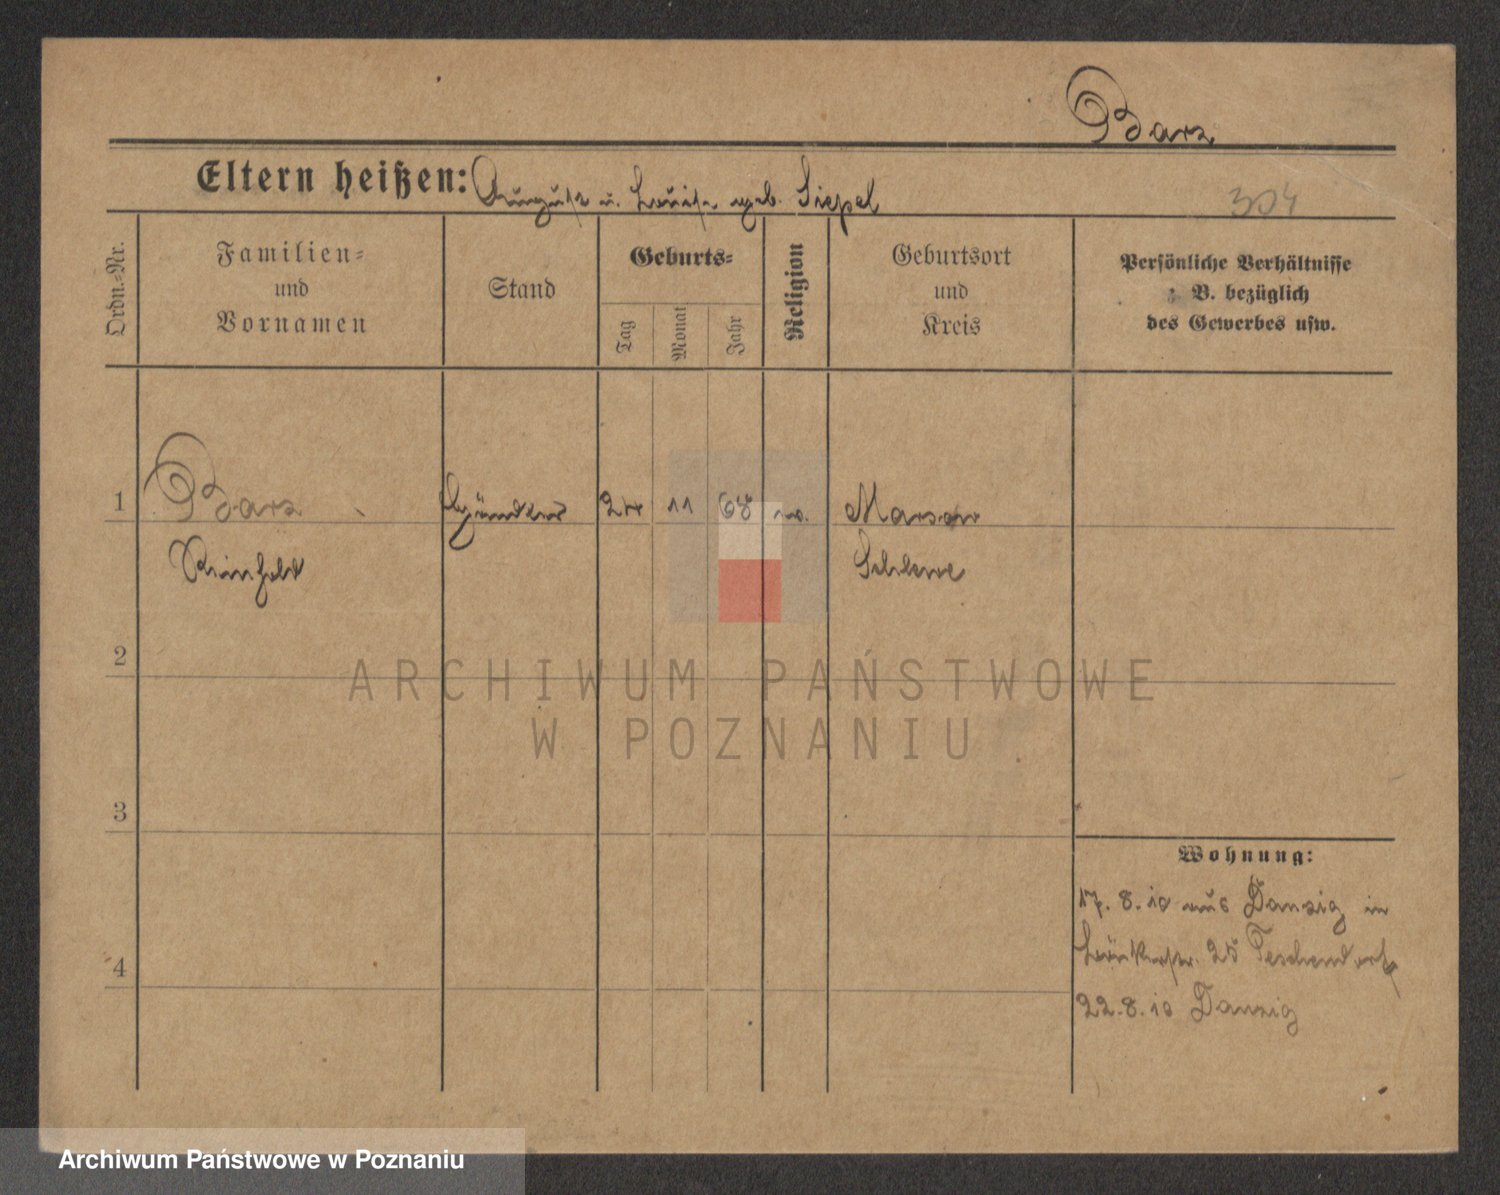 Barz
Eltern heißen: August u. Louise geb. Siepel
304
Ordn.-Nr.
Familien-
und
Vornamen
Stand
Geburts-
Tag
Monat
Jahr
Religion
Geburtsort
und
Kreis
Persönliche Verhältnisse
z. B. bezüglich
des Gewerbes usw.
1 Barz Händler 24 11 68 ev. Marsow
Reinhold Schlawe
2
ARCHIWUM PAŃSTWOWE
W POZNANIU
3
4
Wohnung:
17. 8. 10 aus Danzig in
25 Teschendorf
22. 8. 10 Danzig
Archiwum Państwowe w Poznaniu